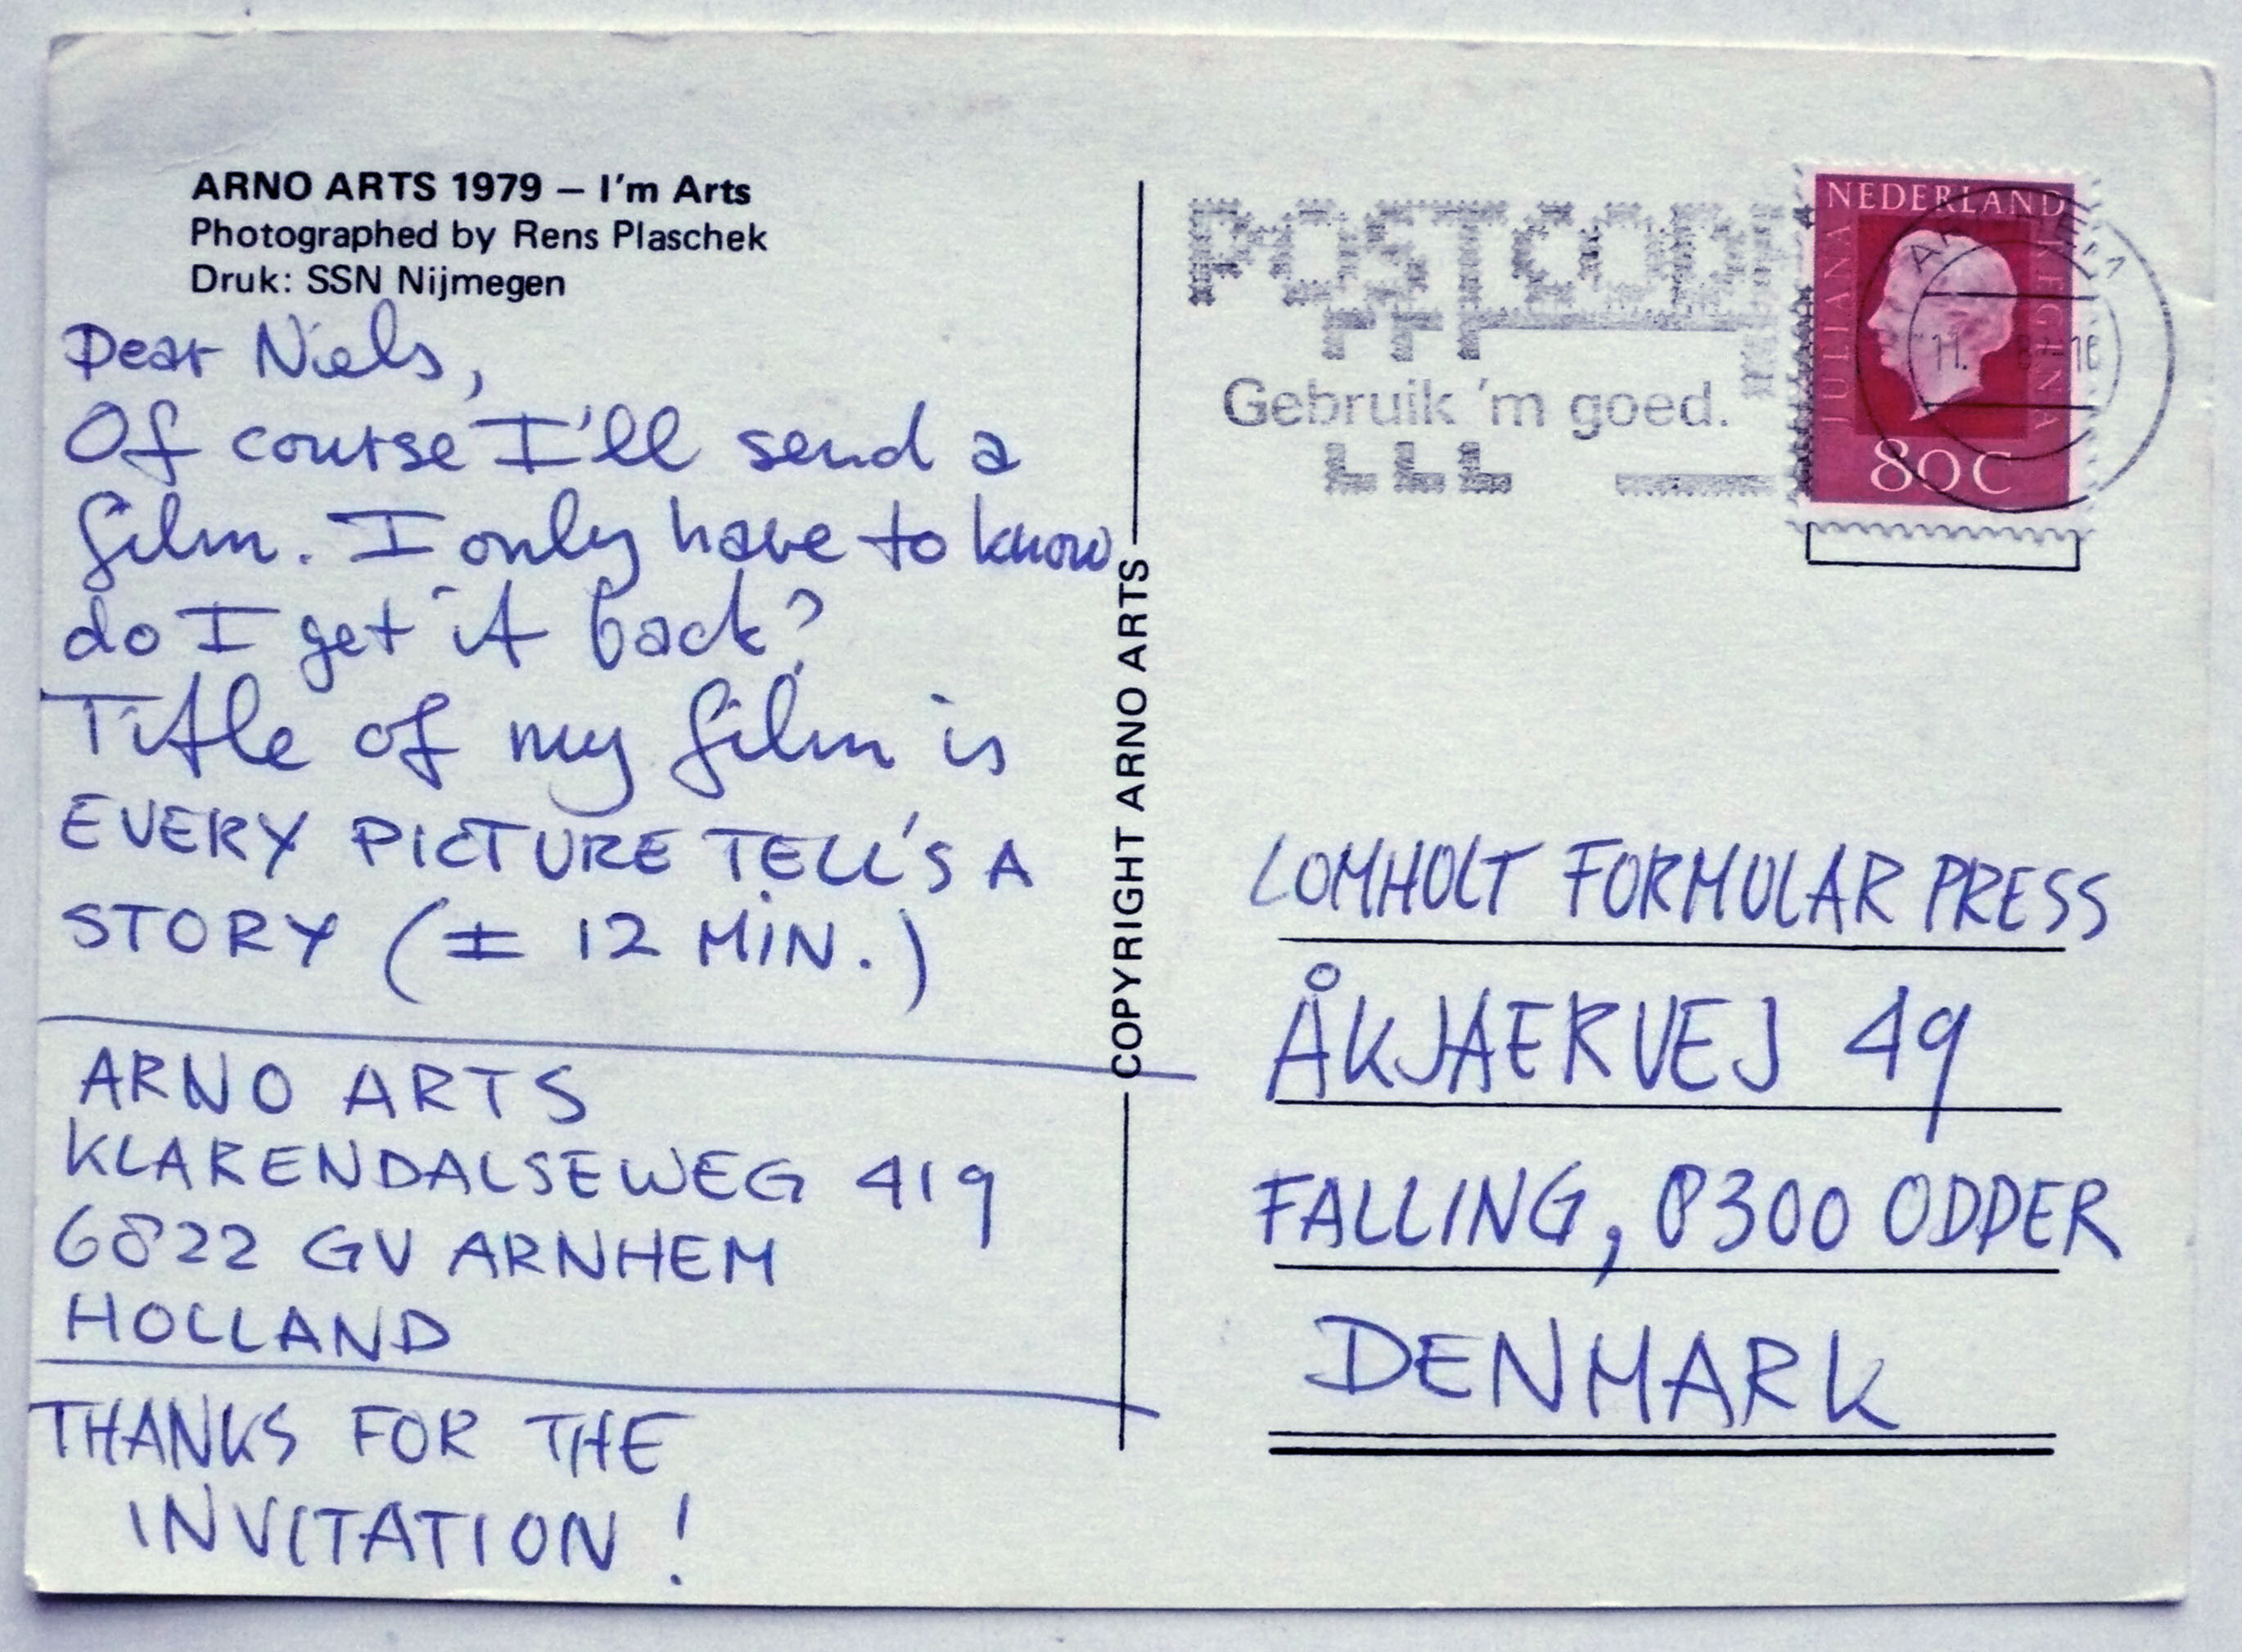 ARNO ARTS 1979 – I'm Arts
Photographed by Rens Plaschek
Druk: SSN Nijmegen
Dear Niels,
Of course I'll send a
film. I only have to know
do I get it back?
Title of my film is
EVERY PICTURE TELL'S A
STORY (± 12 MIN.)
ARNO ARTS
KLARENDALSEWEG 419
6822 GV ARNHEM
HOLLAND
THANKS FOR THE
INVITATION!
COPYRIGHT ARNO ARTS
POSTCODE
Gebruik 'm goed.
NEDERLAND
JULIANA
REGINA
80C
LOMHOLT FORMULAR PRESS
ÅKJAERVEJ 49
FALLING, 8300 ODDER
DENMARK